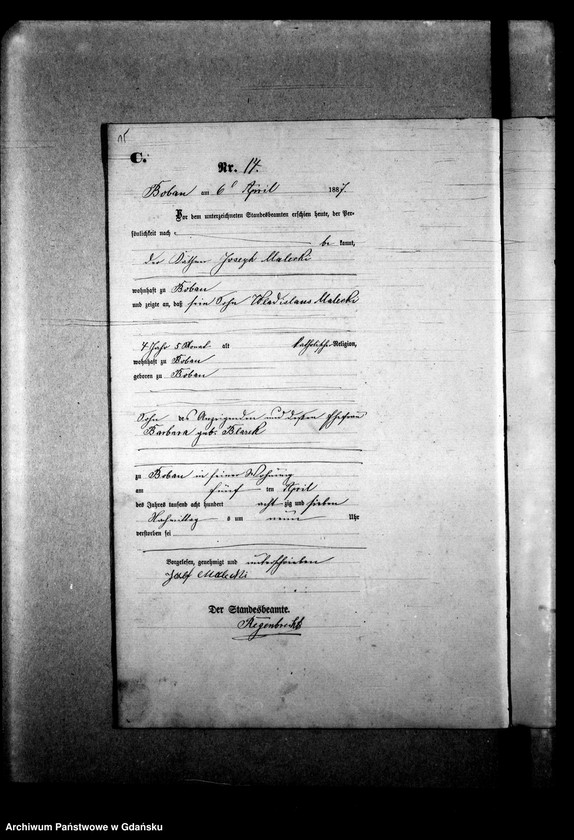 15
C.
Nr. 17.
Boban am 6t April 1887.
Vor dem unterzeichneten Standesbeamten erschien heute, der Per-
sönlichkeit nach
be kannt,
der Käthner Joseph Malecki
wohnhaft zu Boban
und zeigte an, daß sein Sohn Wladislaus Malecki
4 Jahr 5 Monat alt katholischer Religion,
wohnhaft zu Boban
geboren zu Boban
Sohn des Anzeigenden und dessen Ehefrau
Barbara geb.
zu Boban in seiner Wohnung
am fünf ten April
des Jahres tausend acht hundert acht zig und sieben
Nachmittag s um neun Uhr
verstorben sei
Vorgelesen, genehmigt und unterschrieben
Malecki
Der Standesbeamte.
Regenbrecht
Archiwum Państwowe w Gdańsku